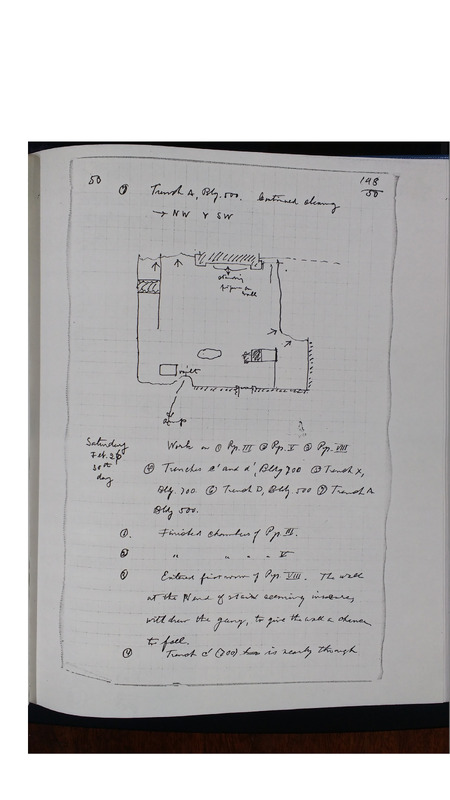 50
148
50
⑨ Trench A, Bldg. 500. Continued cleaning
→ NW Y SW
standing
figure on
wall
niet
dump
Saturday
Feb. 26
50th
day
Work on ① Pyr. III ② Pyr. V ③ Pyr. VIII
④ Trenches c' and d', Bldg 700 ⑤ Trench X,
Bldg. 700. ⑥ Trench D, Bldg 500 ⑦ Trench A
Bldg 500.
①. Finished chambers of Pyr. III.
② " " " " V
③ Entered first room of Pyr. VIII. The wall
at the N end of stairs seeming insecure,
withdrew the gang, to give the wall a chance
to fall.
④ Trench c' (700) is nearly through